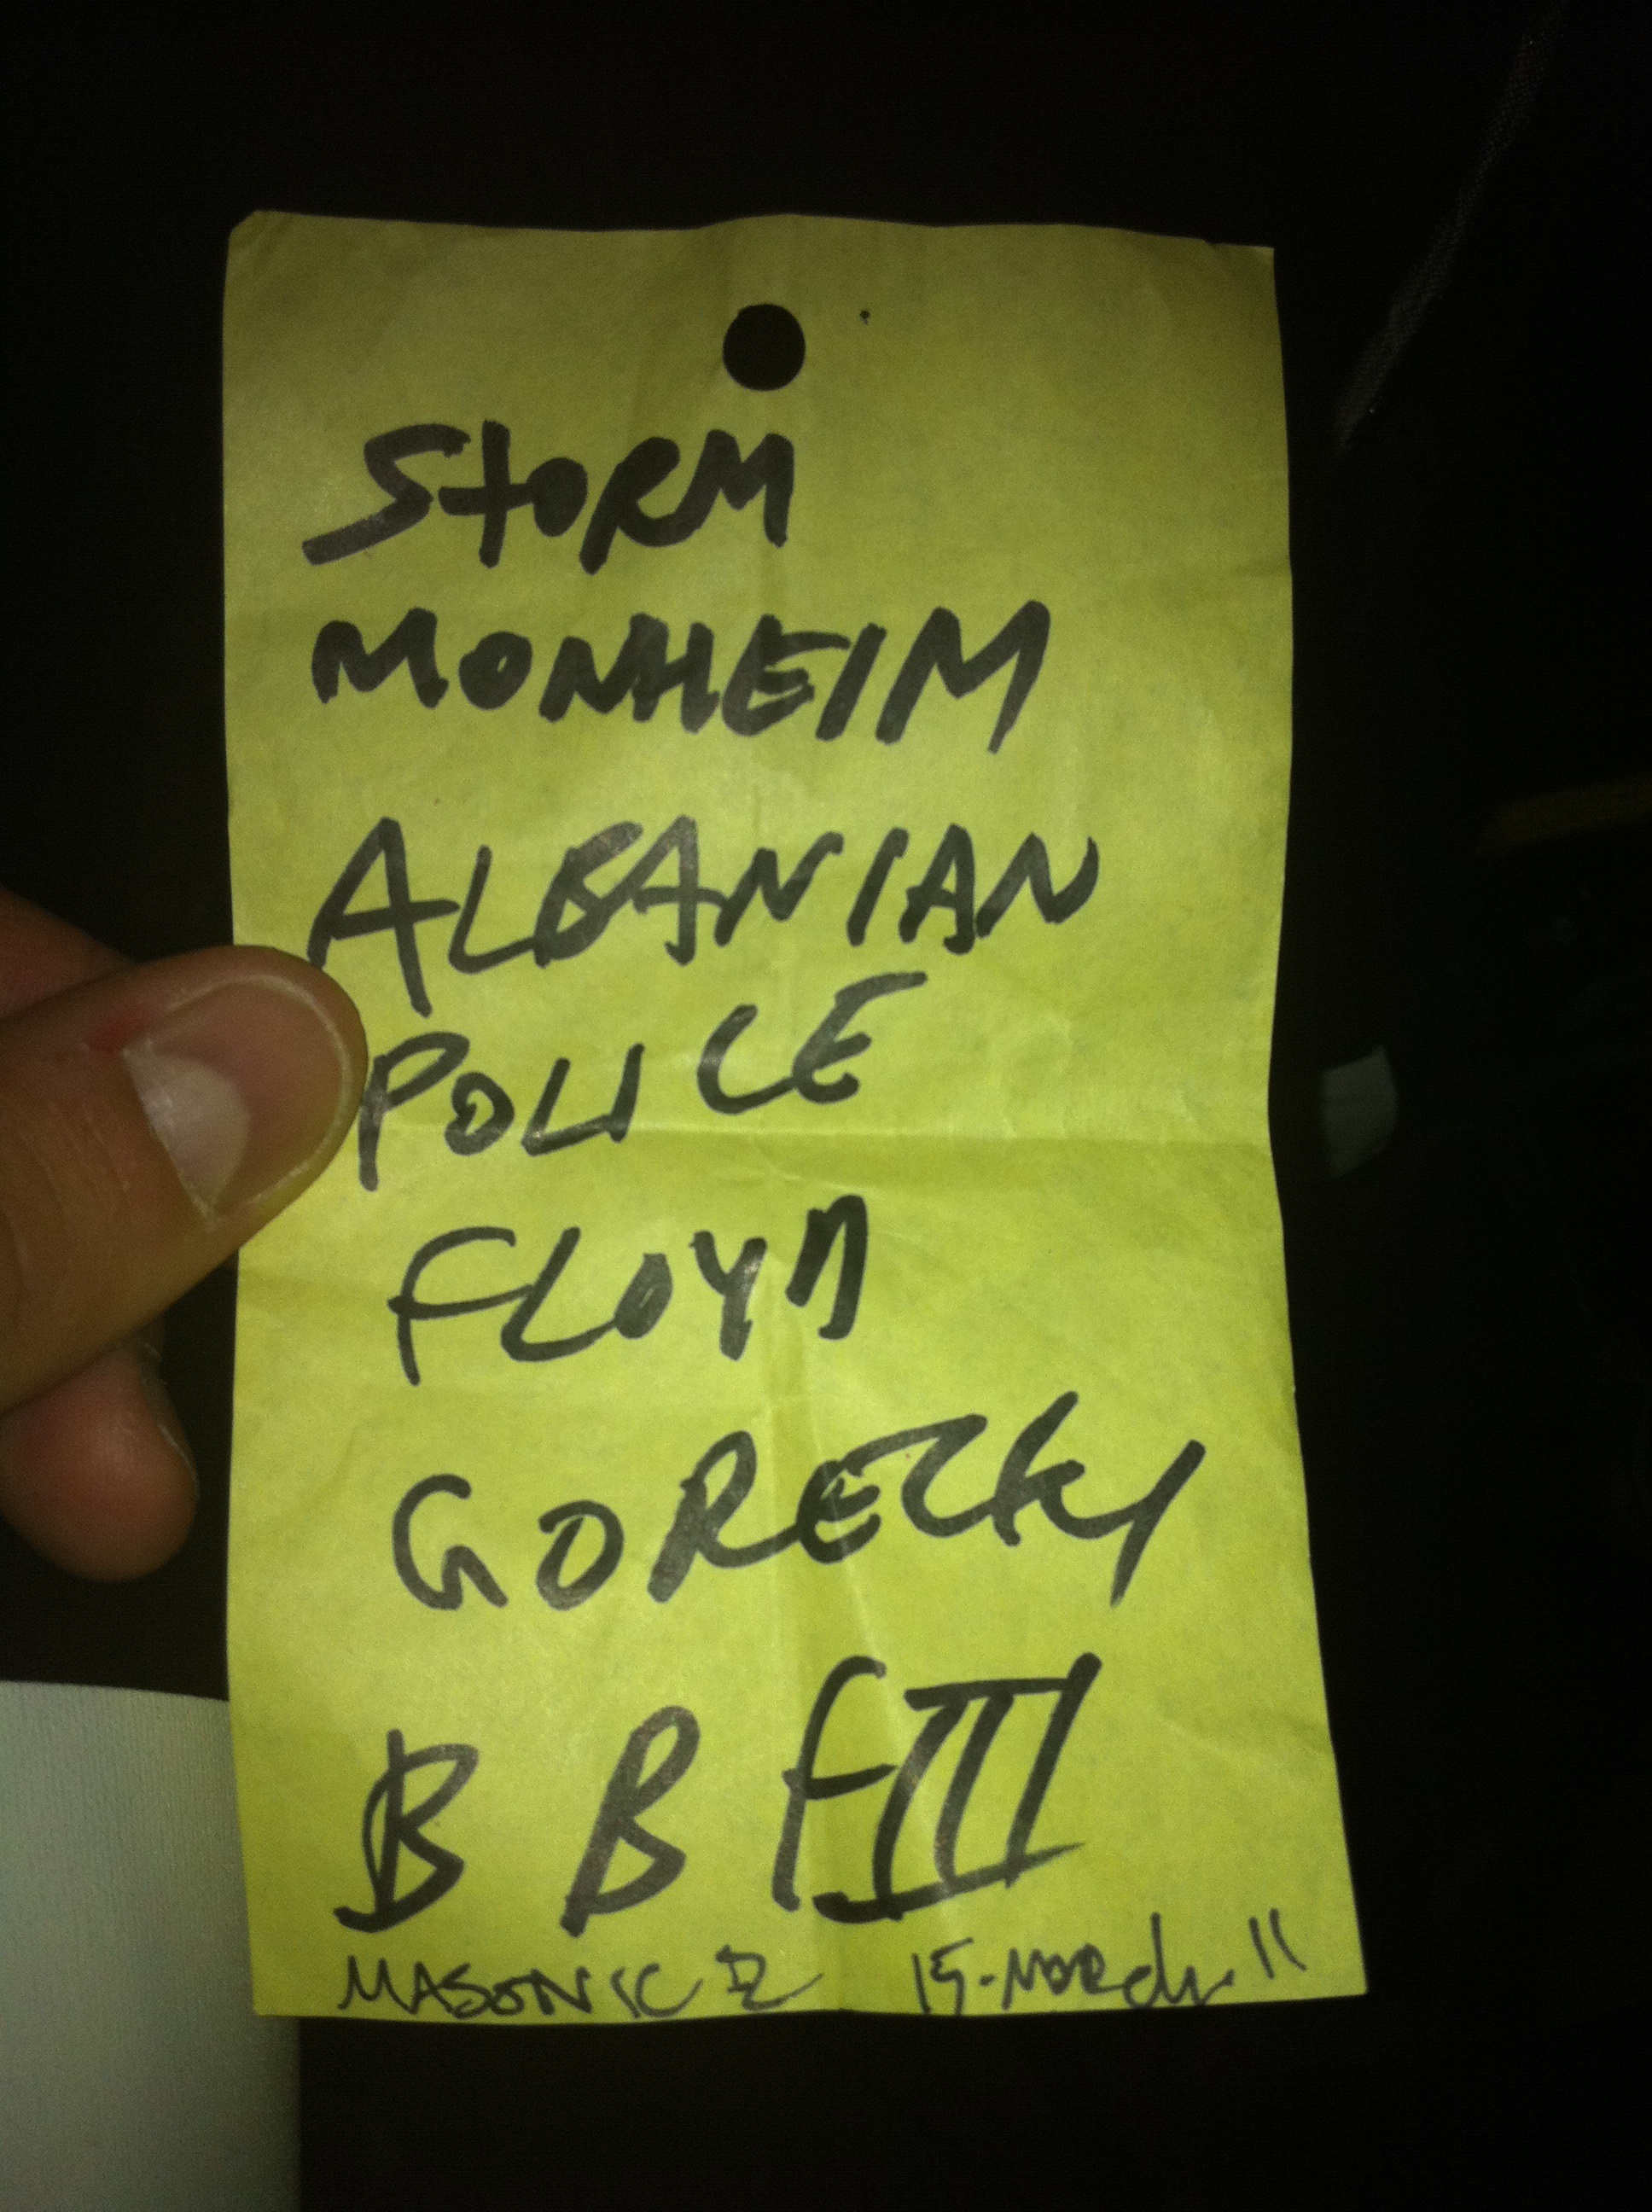 STORM
MONHEIM
ALBANIAN
POLICE
FLOYD
GORECKI
B B F III
MASONIC 15-MARCH 11